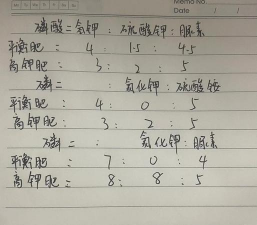 Memo No.
Date / /
磷酸二氢钾:硫酸钾:尿素
平衡肥: 4 : 1.5 : 4.5
高钾肥: 3 : 2 : 5
磷二 : 氯化钾:硫酸铵
平衡肥: 4 : 0 : 5
高钾肥: 3 : 2 : 5
磷二 : 氯化钾:尿素
平衡肥: 7 : 0 : 4
高钾肥: 8 : 8 : 5